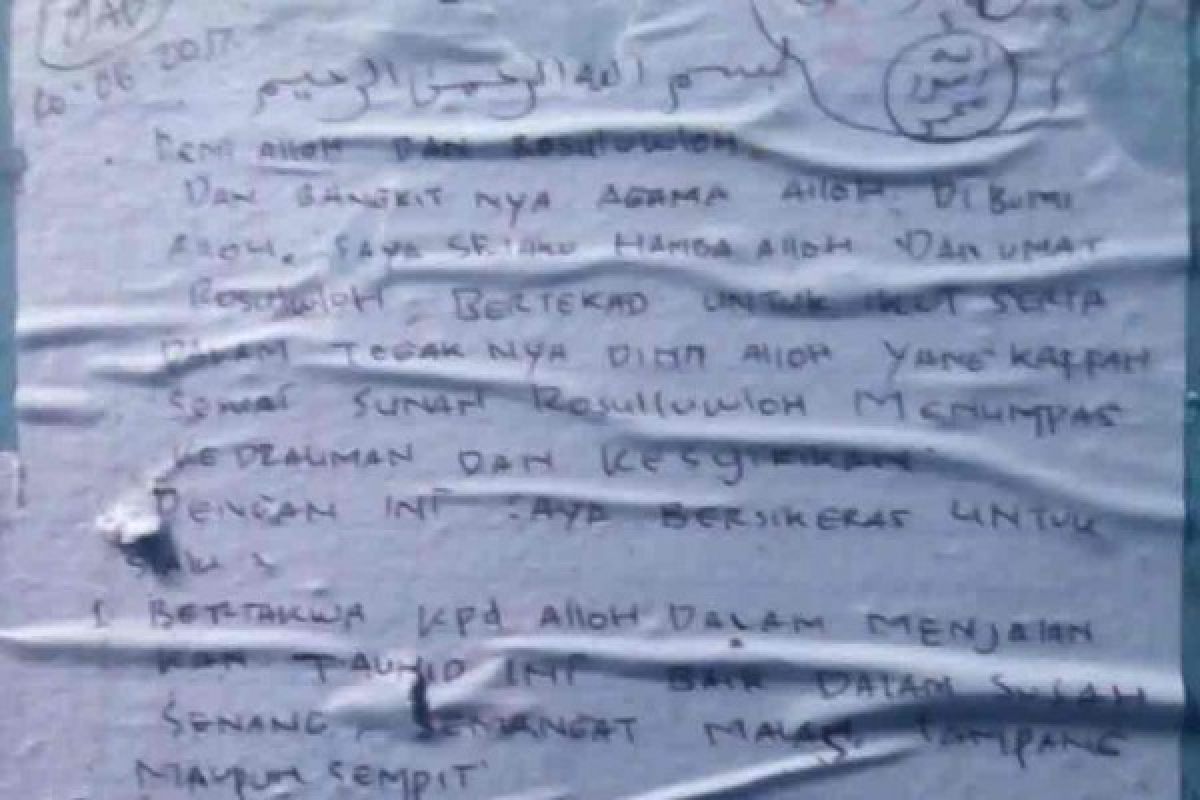 JAD
20-06-2017
بسم الله الرحمن الرحيم
الله
رسول
محمد
Demi Alloh DAN Rosululloh
DAN BANGKIT NYA AGAMA Alloh DI BUMI
Alloh. SAYA SELAKU HAMBA Alloh DAN UMAT
Rosululoh BERTEKAD UNTUK IKUT SERTA
DALAM TEGAK NYA DINN Alloh YANG KAFFAH
SUNAH Rosulluwloh MENUMPAS
KEDZALIMAN DAN KESYIRIKAN
DENGAN INI SAYA BERSIKERAS UNTUK
1 BERTAKWA KPd Alloh DALAM MENJALAN
KAN TAUHID INI BAIK DALAM SUSAH
SENANG, SEMANGAT MALAS, LAMPANG
MAUPUN SEMPIT